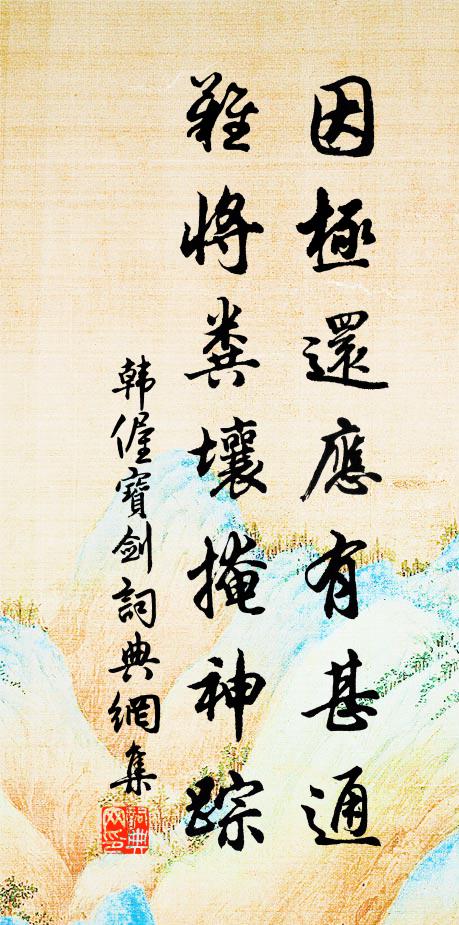 因極還應有甚通
難將糞壤掩神踪
韩偓寶劍詞典網集
詞典網印